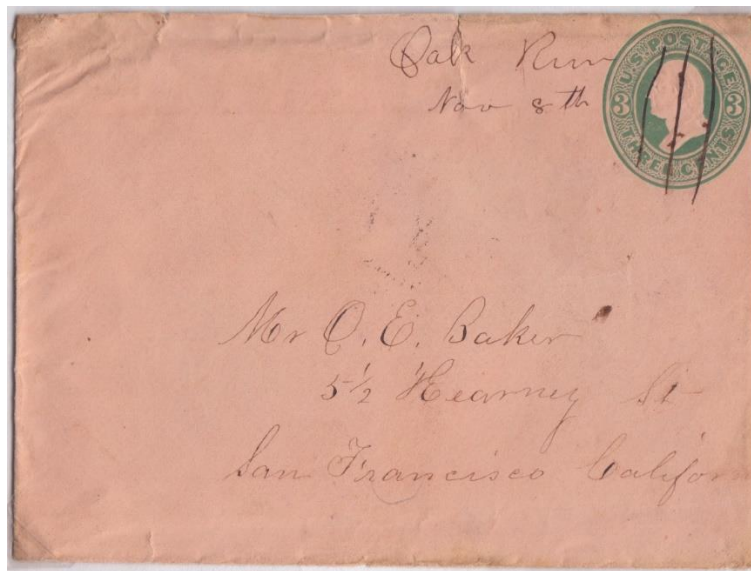 Oak Run
Nov 8th
U.S. POSTAGE
3 3
THREE CENTS
Mr O. E. Baker
5½ Kearney St
San Francisco Califor